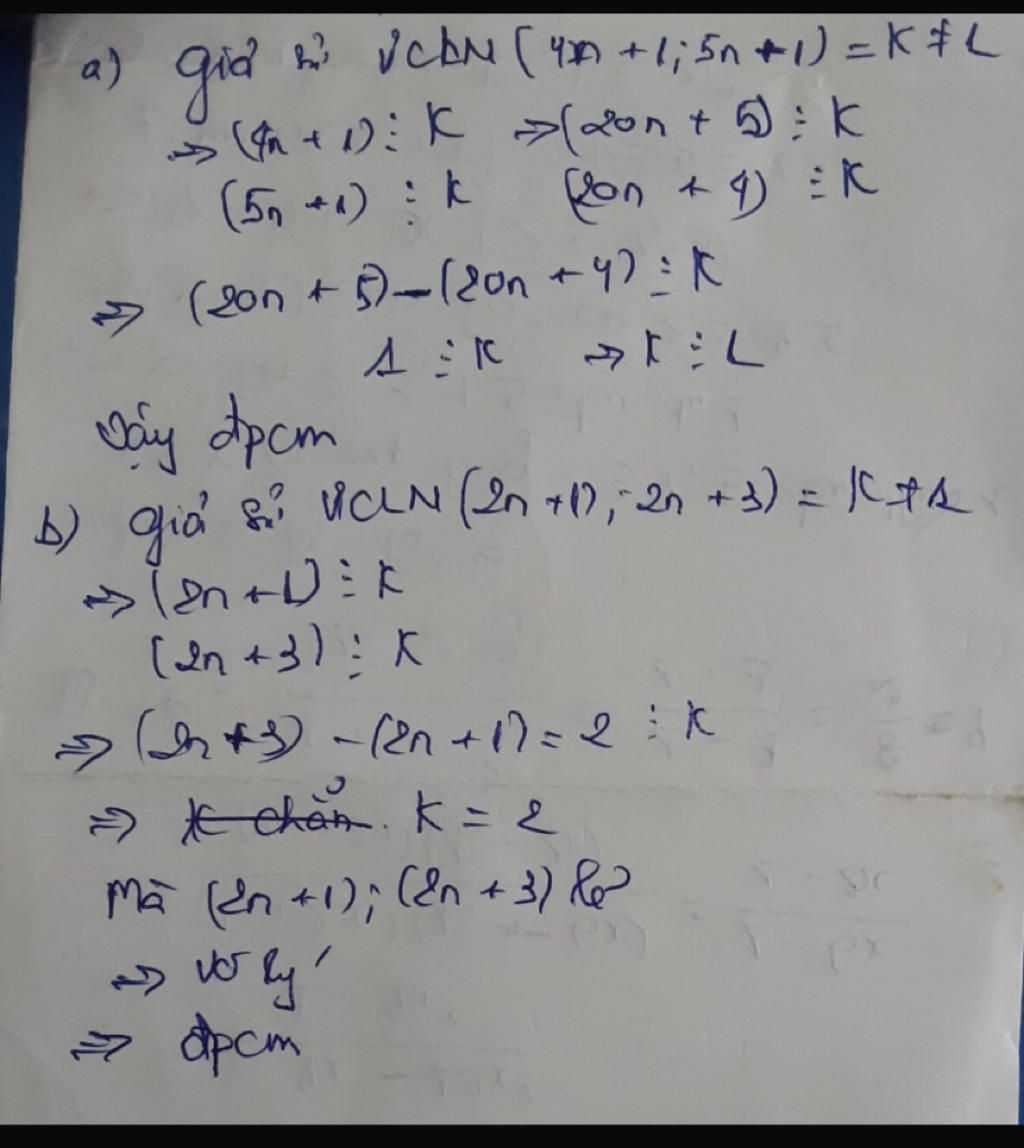 a) giả sử ƯCLN (4n + 1; 5n + 1) = K ≠ 1
=> (4n + 1) ⋮ K => (20n + 5) ⋮ K
(5n + 1) ⋮ K (20n + 4) ⋮ K
=> (20n + 5) - (20n + 4) ⋮ K
1 ⋮ K => K ⋮ 1
Vậy đpcm
b) giả sử ƯCLN (2n + 1); 2n + 3) = K ≠ 1
=> (2n + 1) ⋮ K
(2n + 3) ⋮ K
=> (2n + 3) - (2n + 1) = 2 ⋮ K
=> K chẵn. K = 2
Mà (2n + 1); (2n + 3) lẻ
=> vô lý
=> đpcm